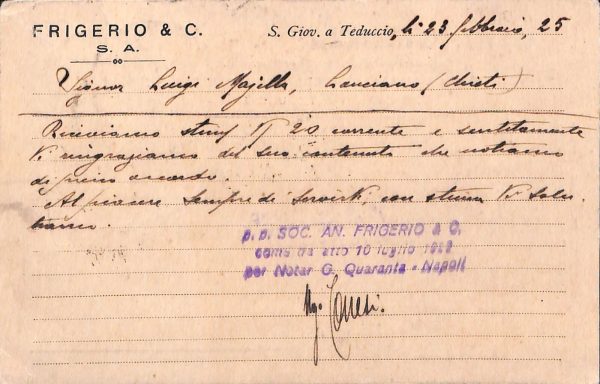 FRIGERIO & C.
S. A.
S. Giov. a Teduccio, li 23 febbraio, 25
Signor Luigi Majella, Lanciano (Chieti)
Riceviamo 20 corrente e sentitamente
Vi ringraziamo del suo contenuto che notiamo
di pieno accordo.
Al piacere sempre di servirvi, con stima Vi salu-
tiamo.
p. p. SOC. AN. FRIGERIO & C.
come da atto 10 luglio
per Notar G. Quaranta - Napoli